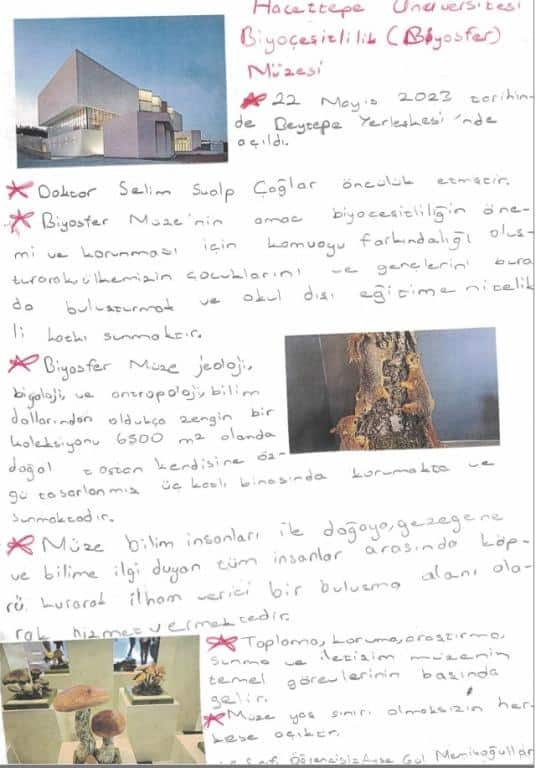 Hacettepe Üniversitesi
Biyoçeşitlilik (Biyosfer)
Müzesi
22 Mayıs 2023 tarihin-
de Beytepe Yerleşkesi'nde
açıldı.
Doktor Selim Sualp Çağlar öncülük etmiştir.
Biyosfer Müze'nin amac biyoçeşitliliğin öne-
mi ve korunması için kamuoyu farkındalığı oluş-
turarak, ülkemizin çocuklarını ve gençlerini bura
da buluşturmak ve okul dışı eğitime nitelik
li katkı sunmaktır.
Biyosfer Müze jeoloji,
biyoloji, ve antropoloji, bilim
dallarından oldukça zengin bir
koleksiyonu 6500 m2 alanda
doğal taştan kendisine öz-
gü tasarlanmış üç katlı binasında korumakta ve
sunmaktadır.
Müze bilim insanları ile doğaya, gezegene
ve bilime ilgi duyan tüm insanlar arasında köp-
rü kurarak ilham verici bir buluşma alanı ola-
rak hizmet vermektedir.
Toplama, koruma, araştırma,
sunma ve iletişim müzenin
temel görevlerinin başında
gelir.
Müze yaş sınırı olmaksızın her-
kese açıktır.